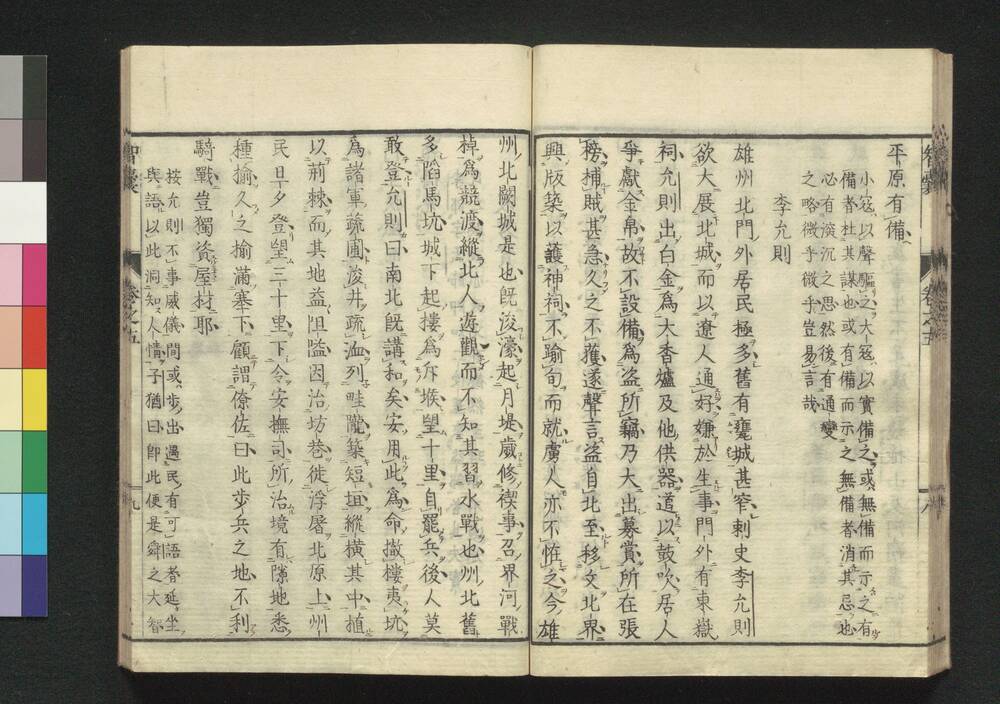 平原有備
小寇以聲驅之大寇以實備之或無備而示之有
備者杜其謀也或有備而示之無備者消其忌也
必有深沉之思然後有通變
之略微乎微乎豈易言哉
李允則
雄州北門外居民極多舊有甕城甚窄刺史李允則
欲大展北城而以遼人通好嫌於生事門外有東嶽
祠允則出白金為大香爐及他供器道以鼓吹居人
爭獻金帛故不設備為盜所竊乃大出募賞所在張
榜捕賊甚急久之不獲遂聲言盜自北至移文北界
興版築以護神祠不踰旬而就虜人亦不恠之今雄
州北關城是也旣浚濠起月堤歲修禊事召界河戰
棹為競渡縱北人遊觀而不知其習水戰也州北舊
多䧟馬坑城下起樓為斥堠望十里自罷兵後人莫
敢登允則曰南北旣講和矣安用此為命撤樓夷坑
為諸軍蔬圃浚井疏洫列畦隴築短垣縱橫其中植
以荊棘而其地益阻隘因治坊巷徙浮屠北原上州
民旦夕登望三十里下令安撫司所治境有隙地悉
種揄久之揄滿塞下顧謂僚佐曰此步兵之地不利
騎戰豈獨資屋材耶
按允則不事威儀間或步出遇民有可語者延坐
與語以此洞知人情子猶曰即此便是舜之大智
智囊
卷之五
八
智囊
卷之五
九